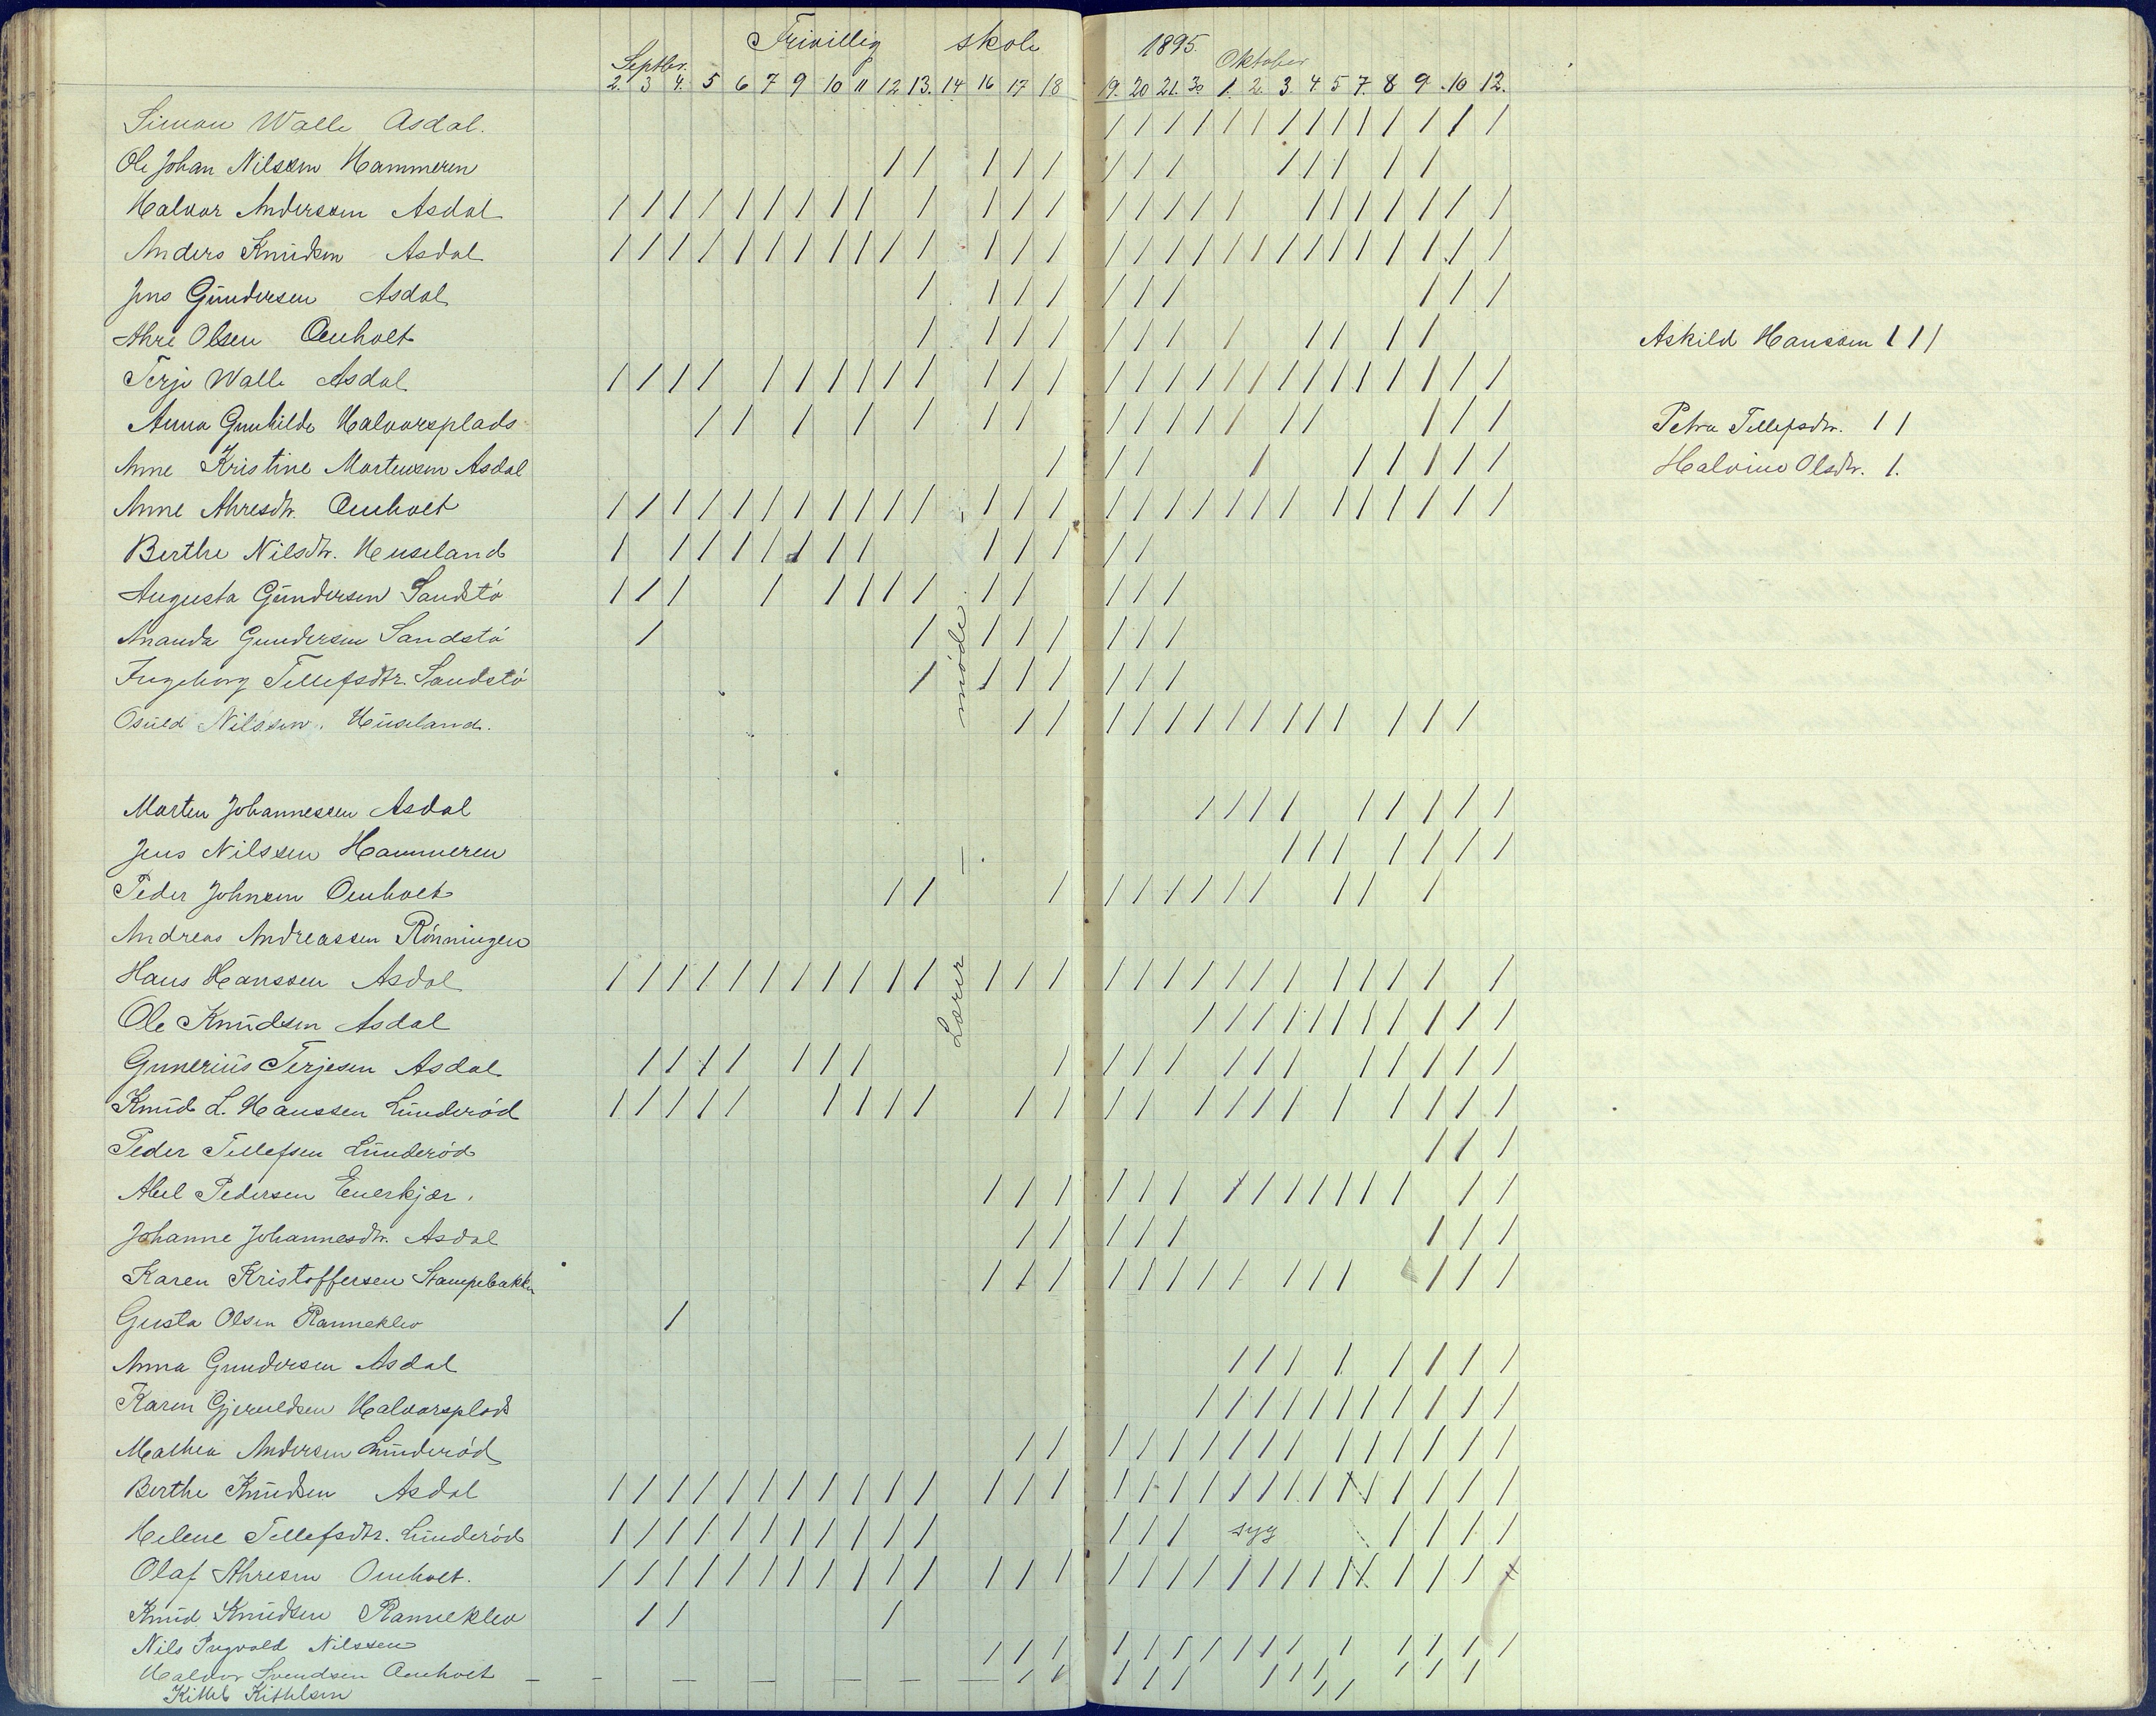 Frivillig skole 1895.
Septbr. Oktober
2. 3 4. 5 6 7 9 10 11 12 13. 14 16 17 18 19. 20 21. 30 1. 2. 3. 4 5 7. 8 9 10 12.
Simon Walle Asdal.
Ole Johan Nilssen Hammeren
Halvor Anderssen Asdal
Anders Knudsen Asdal
Jens Gundersen Asdal
Ahre Olsen Omholt
Askild Hanssen 1 1 1
Terje Walle Asdal
Anna Gunhilde Halvorsplads
Petra Tellefsdtr. 1 1
Anne Kristine Mortensen Asdal
Halvine Olsdtr. 1.
Anne Ahresdtr. Omholt
Berthe Nilsdtr. Heuseland
Augusta Gundersen Sandstø
Ananda Gundersen Sandstø
Ingeborg Tellefsdtr. Sandstø
Osuld Nilssen. Huseland.
Lærermøde
Morten Johannessen Asdal
Jens Nilssen Hammeren
Peder Johnsen Omholt
Andreas Andreassen Rønningen
Hans Hanssen Asdal
Ole Knudsen Asdal
Gunerius Terjesen Asdal
Knud L. Hanssen Lunderød
Peder Tellefsen Lunderød
Abel Pedersen Enerkjær.
Johanne Johannesdtr. Asdal
Karen Kristoffersen Stampebakken
Gusta Olsen Ranneklev
Anna Gundersen Asdal
Karen Gjeruldsen Halvorsplads
Mathea Andersen Lunderød
Berthe Knudsen Asdal
Helene Tellefsdtr. Lunderød syg
Olaf Ahresen Omholt.
Knud Knudsen Ranneklev
Nils Ingvald Nilssen
Halvor Svendsen Omholt
Kittel Kittelsen